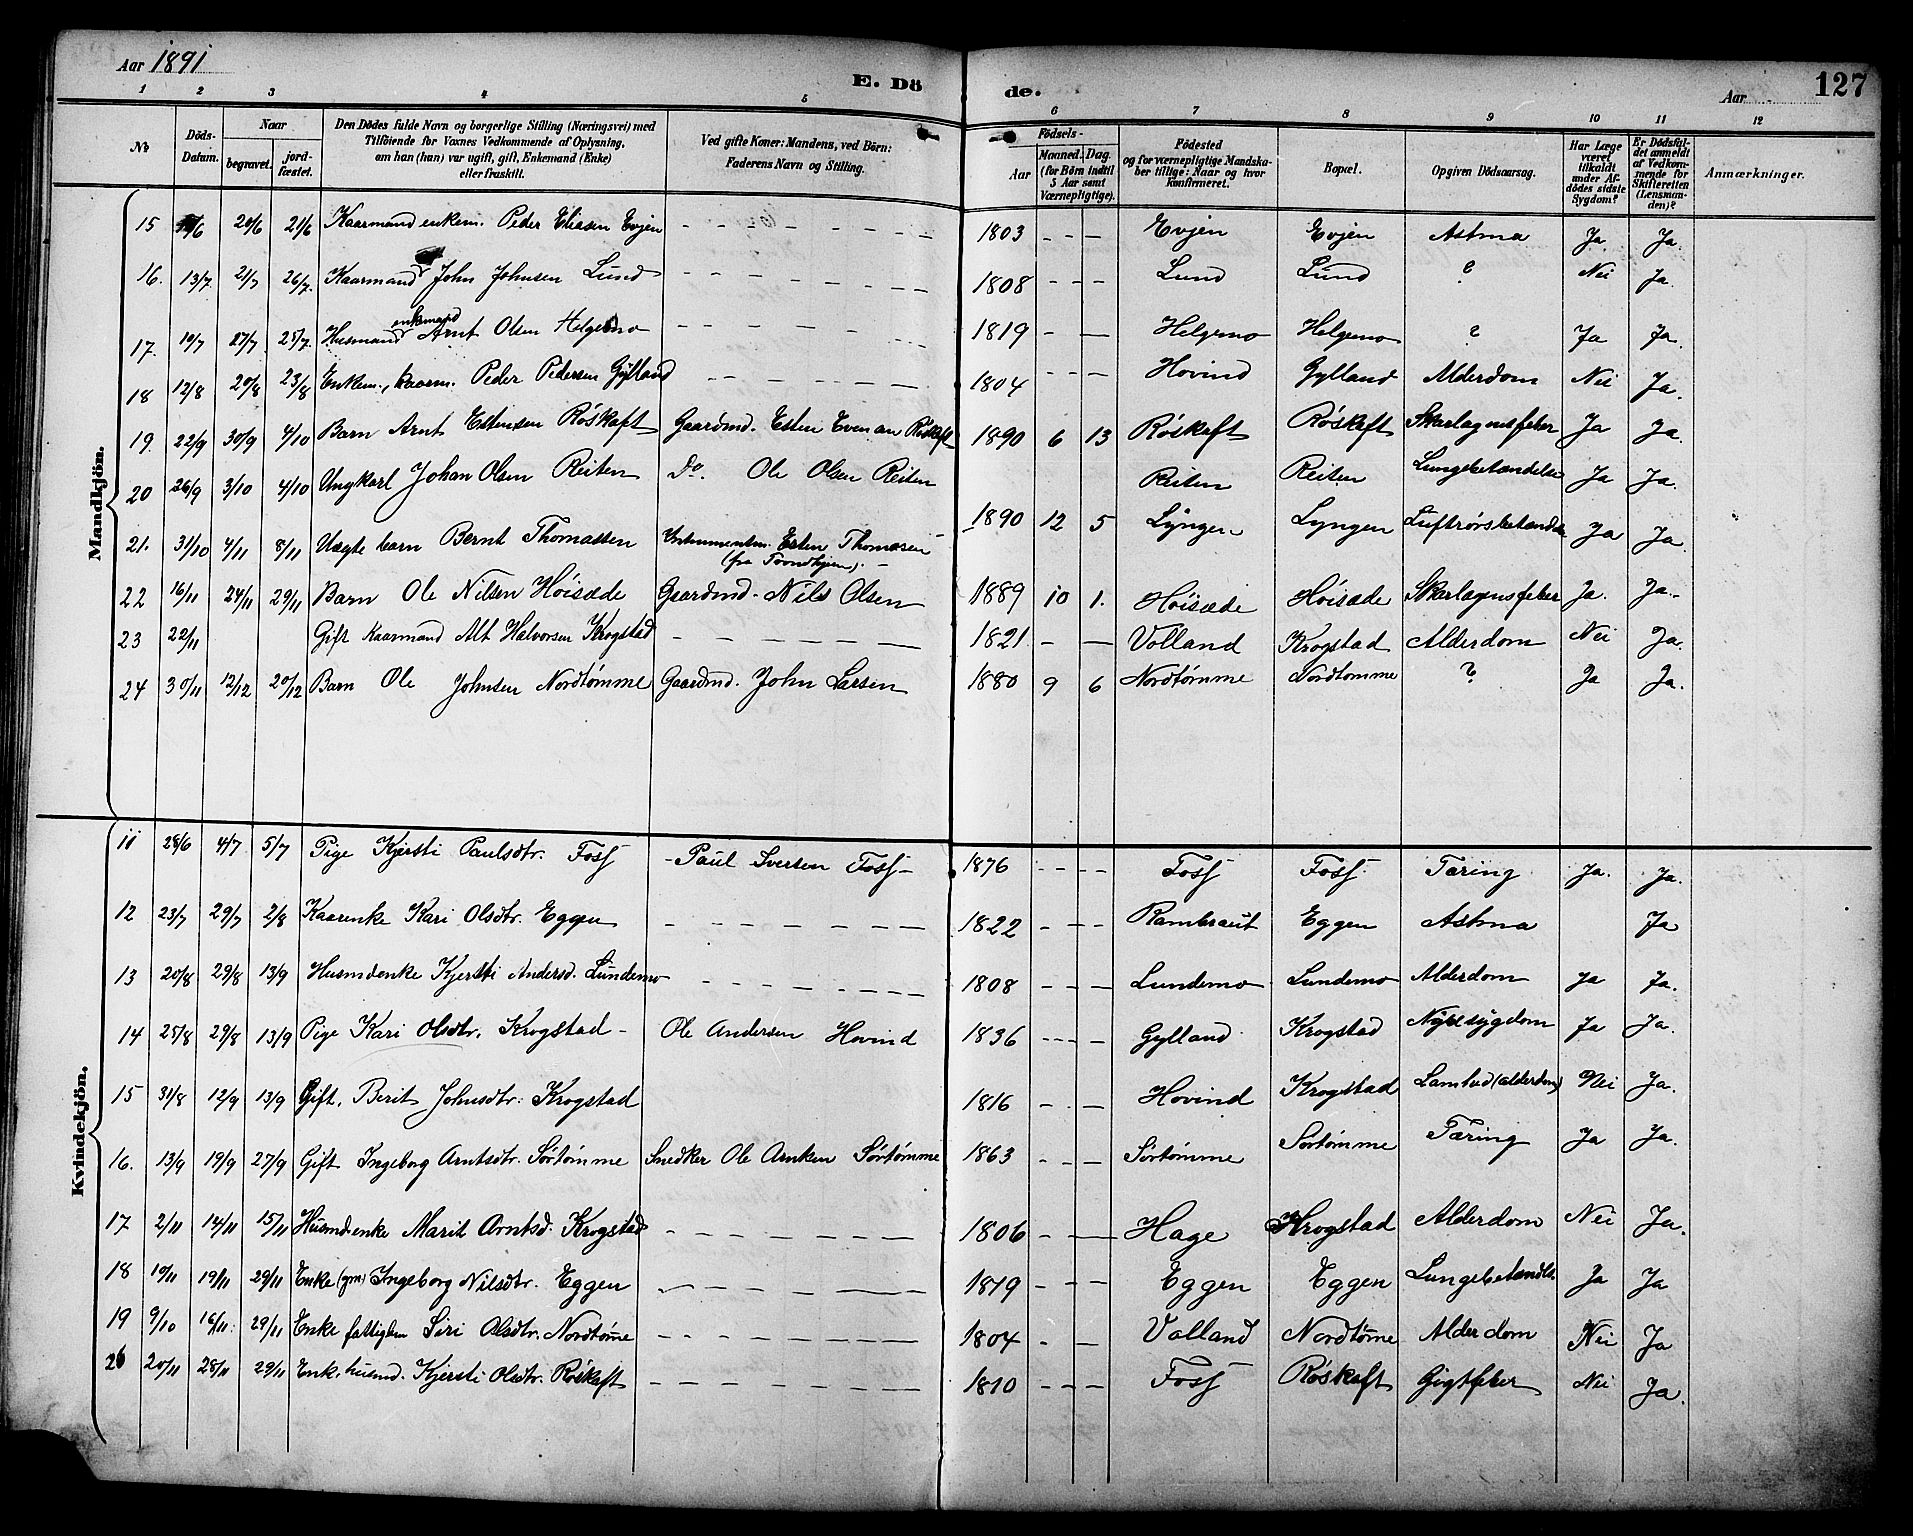 Aar 1891
E. Dö de.
Aar
127
1 2 3 4 5 6 7 8 9 10 11 12
No
Döds-Datum.
Naar
begravet.
jord-fæstet.
Den Dödes fulde Navn og borgerlige Stilling (Næringsvei) med
Tilföiende for Voxnes Vedkommende af Oplysning,
om han (hun) var ugift, gift, Enkemand (Enke)
eller fraskilt.
Ved gifte Koner: Mandens, ved Börn:
Faderens Navn og Stilling.
Födsels-
Aar
Maaned. Dag.
(for Börn indtil
5 Aar samt
Værnepligtige).
Födested
og for værnepligtige Mandska-
ber tillige: Naar og hvor
konfirmeret.
Bopæl.
Opgiven Dödsaarsag.
Har Læge
været
tilkaldt
under Af-
dödes sidste
Sygdom?
Er Dödsfal-
det anmeldt
af Vedkom-
mende for
Skifteretten
(Lensman-
den)?
Anmærkninger.
Mandkjön.
15 /6 20/6 21/6 Kaarmand enkem. Peder Eliasen Evjen - - - 1803 - - - Evjen Evjen Astma Ja Ja.
16. 13/7 21/7 26/7 Kaarmand John Johnsen Lund - - - 1808 - - - Lund Lund ? Nei Ja.
17. 19/7 27/7 25/7 Husmand enkemand Arnt Olsen Helgemo - - - 1819 - - Helgemo Helgemo ? Ja Ja.
18 12/8 20/8 23/8 Enkem., kaarm. Peder Pedersen Gylland - - - 1804 - - - Hovind Gylland Alderdom Nei Ja.
19. 22/9 30/9 4/10 Barn Arnt Estensen Röskaft Gaardmd. Esten Evensen Röskaft 1890 6 13 Röskaft Röskaft Skarlagensfeber Ja Ja.
20 26/9 3/10 4/10 Ungkarl Johan Olsen Reiten Do. Ole Olsen Reiten Reiten Reiten Lungebetændelse Ja Ja.
21. 31/10 4/11 8/11 Uægte barn Bernt Thomassen Instrumentm. Esten Thomasen (fra Trondhjem). 1890 12 5 Lyngen Lyngen Luftrörsbetændelse Ja Ja.
22 16/11 24/11 29/11 Barn Ole Nilsen Höisæde Gaardmd. Nils Olsen 1889 10 1. Höisæde Höisæde Skarlagensfeber Ja. Ja.
23 22/11 Gift Kaarmand Alt Halvorsen Krogstad - - - 1821 - - Volland Krogstad Alderdom Nei Ja.
24 30/11 12/12 20/12 Barn Ole Johnsen Nordtömme Gaardmd. John Larsen 1880 9 6 Nordtömme Nordtomme ? Ja Ja.
Kvindekjön.
11 28/6 4/7 5/7 Pige Kjersti Paulsdtr. Foss - Paul Iversen Foss - 1876 - - - - Foss Foss. Tæring Ja. Ja.
12 23/7 29/7 2/8 Kaarenke Kari Olsdtr. Eggen - - - 1822 - - - Rambraut Eggen Astma Ja
13 20/8 29/8 13/9 Husmdenke Kjersti Andersd. Lundemo - - - 1808 - - - Lundemo Lundemo Alderdom Ja Ja.
14 25/8 29/8 13/9 Pige Kari Olsdtr. Krogstad - Ole Andersen Hovind 1836 - - - - Gylland Krogstad Nyresygdom Ja Ja.
15 31/8 12/9 13/9 Gift, Berit Johnsdtr. Krogstad 1816 - - - Hovind Krogstad Lamhed (alderdom) Nei Ja.
16. 13/9 19/9 27/9 Gift Ingeborg Arntsdtr. Sörtömme Snedker Ole Arntsen Sörtömme 1863 - - - Sörtömme Sörtömme Tæring Ja Ja.
17 2/11 14/11 15/11 Husmd.enke Marit Arntsd. Krogstad - - - 1806 - - - Hage Krogstad Alderdom Nei Ja.
18 10/11 19/11 29/11 Enke (gm) Ingeborg Nilsdtr. Eggen - - - 1819 - - - Eggen Eggen Lungebetændlse Ja Ja
19 9/10 16/11 29/11 Enke fattiglem Siri Olsdtr. Nordtömme - - - 1804 - - Volland Nordtöme Alderdom Nei Ja
20 20/11 28/11 29/11 Enk. husmd. Kjersti Olsdtr. Röskaft - - - 1810 - - - Foss Röskaft Gigtfeber Nei Ja.